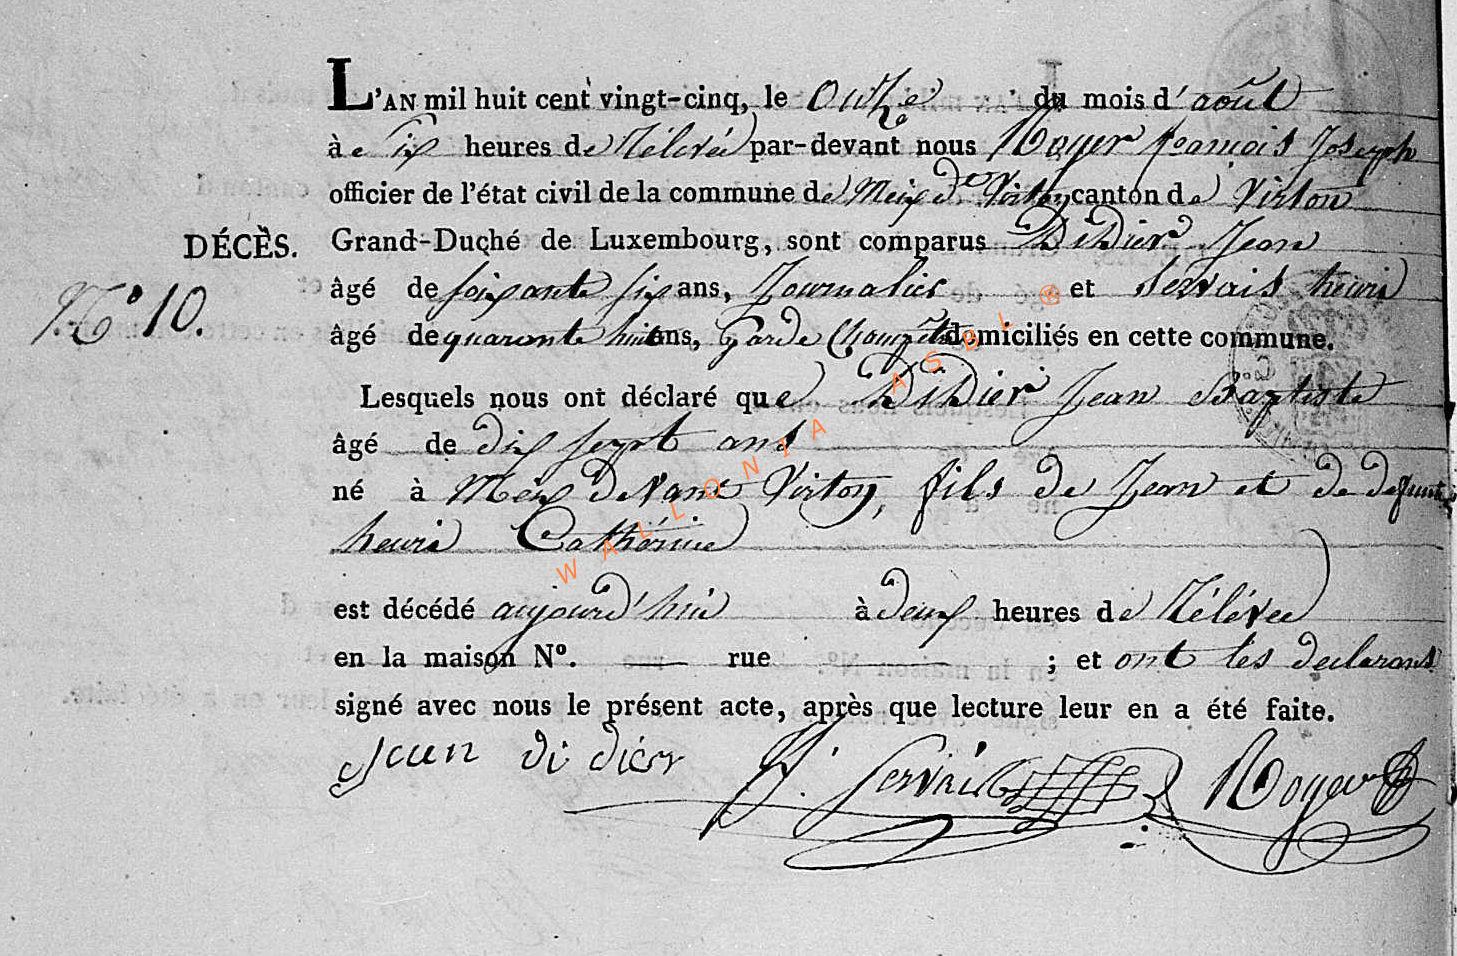 L'AN mil huit cent vingt-cinq, le Onze du mois d'août
à six heures de rélevée par-devant nous Royer françois Joseph
officier de l'état civil de la commune de Meix dt Virton canton de Virton
DÉCÈS. Grand-Duché de Luxembourg, sont comparus Didier Jean
âgé de soixante six ans, Journalier et Servais henri
N° 10.
âgé de quarante huit ans, Garde Champêtre domiciliés en cette commune.
Lesquels nous ont déclaré que Didier Jean Baptiste
âgé de dix sept ans
né à Meix devant Virton, fils de Jean et de defunte
henri Cathérine
est décédé aujourd'hui à deux heures de rélévee
en la maison N°. rue ; et ont les declarans
signé avec nous le présent acte, après que lecture leur en a été faite.
Jean didier H. Servais Royer
WALLONIA ASBL ®